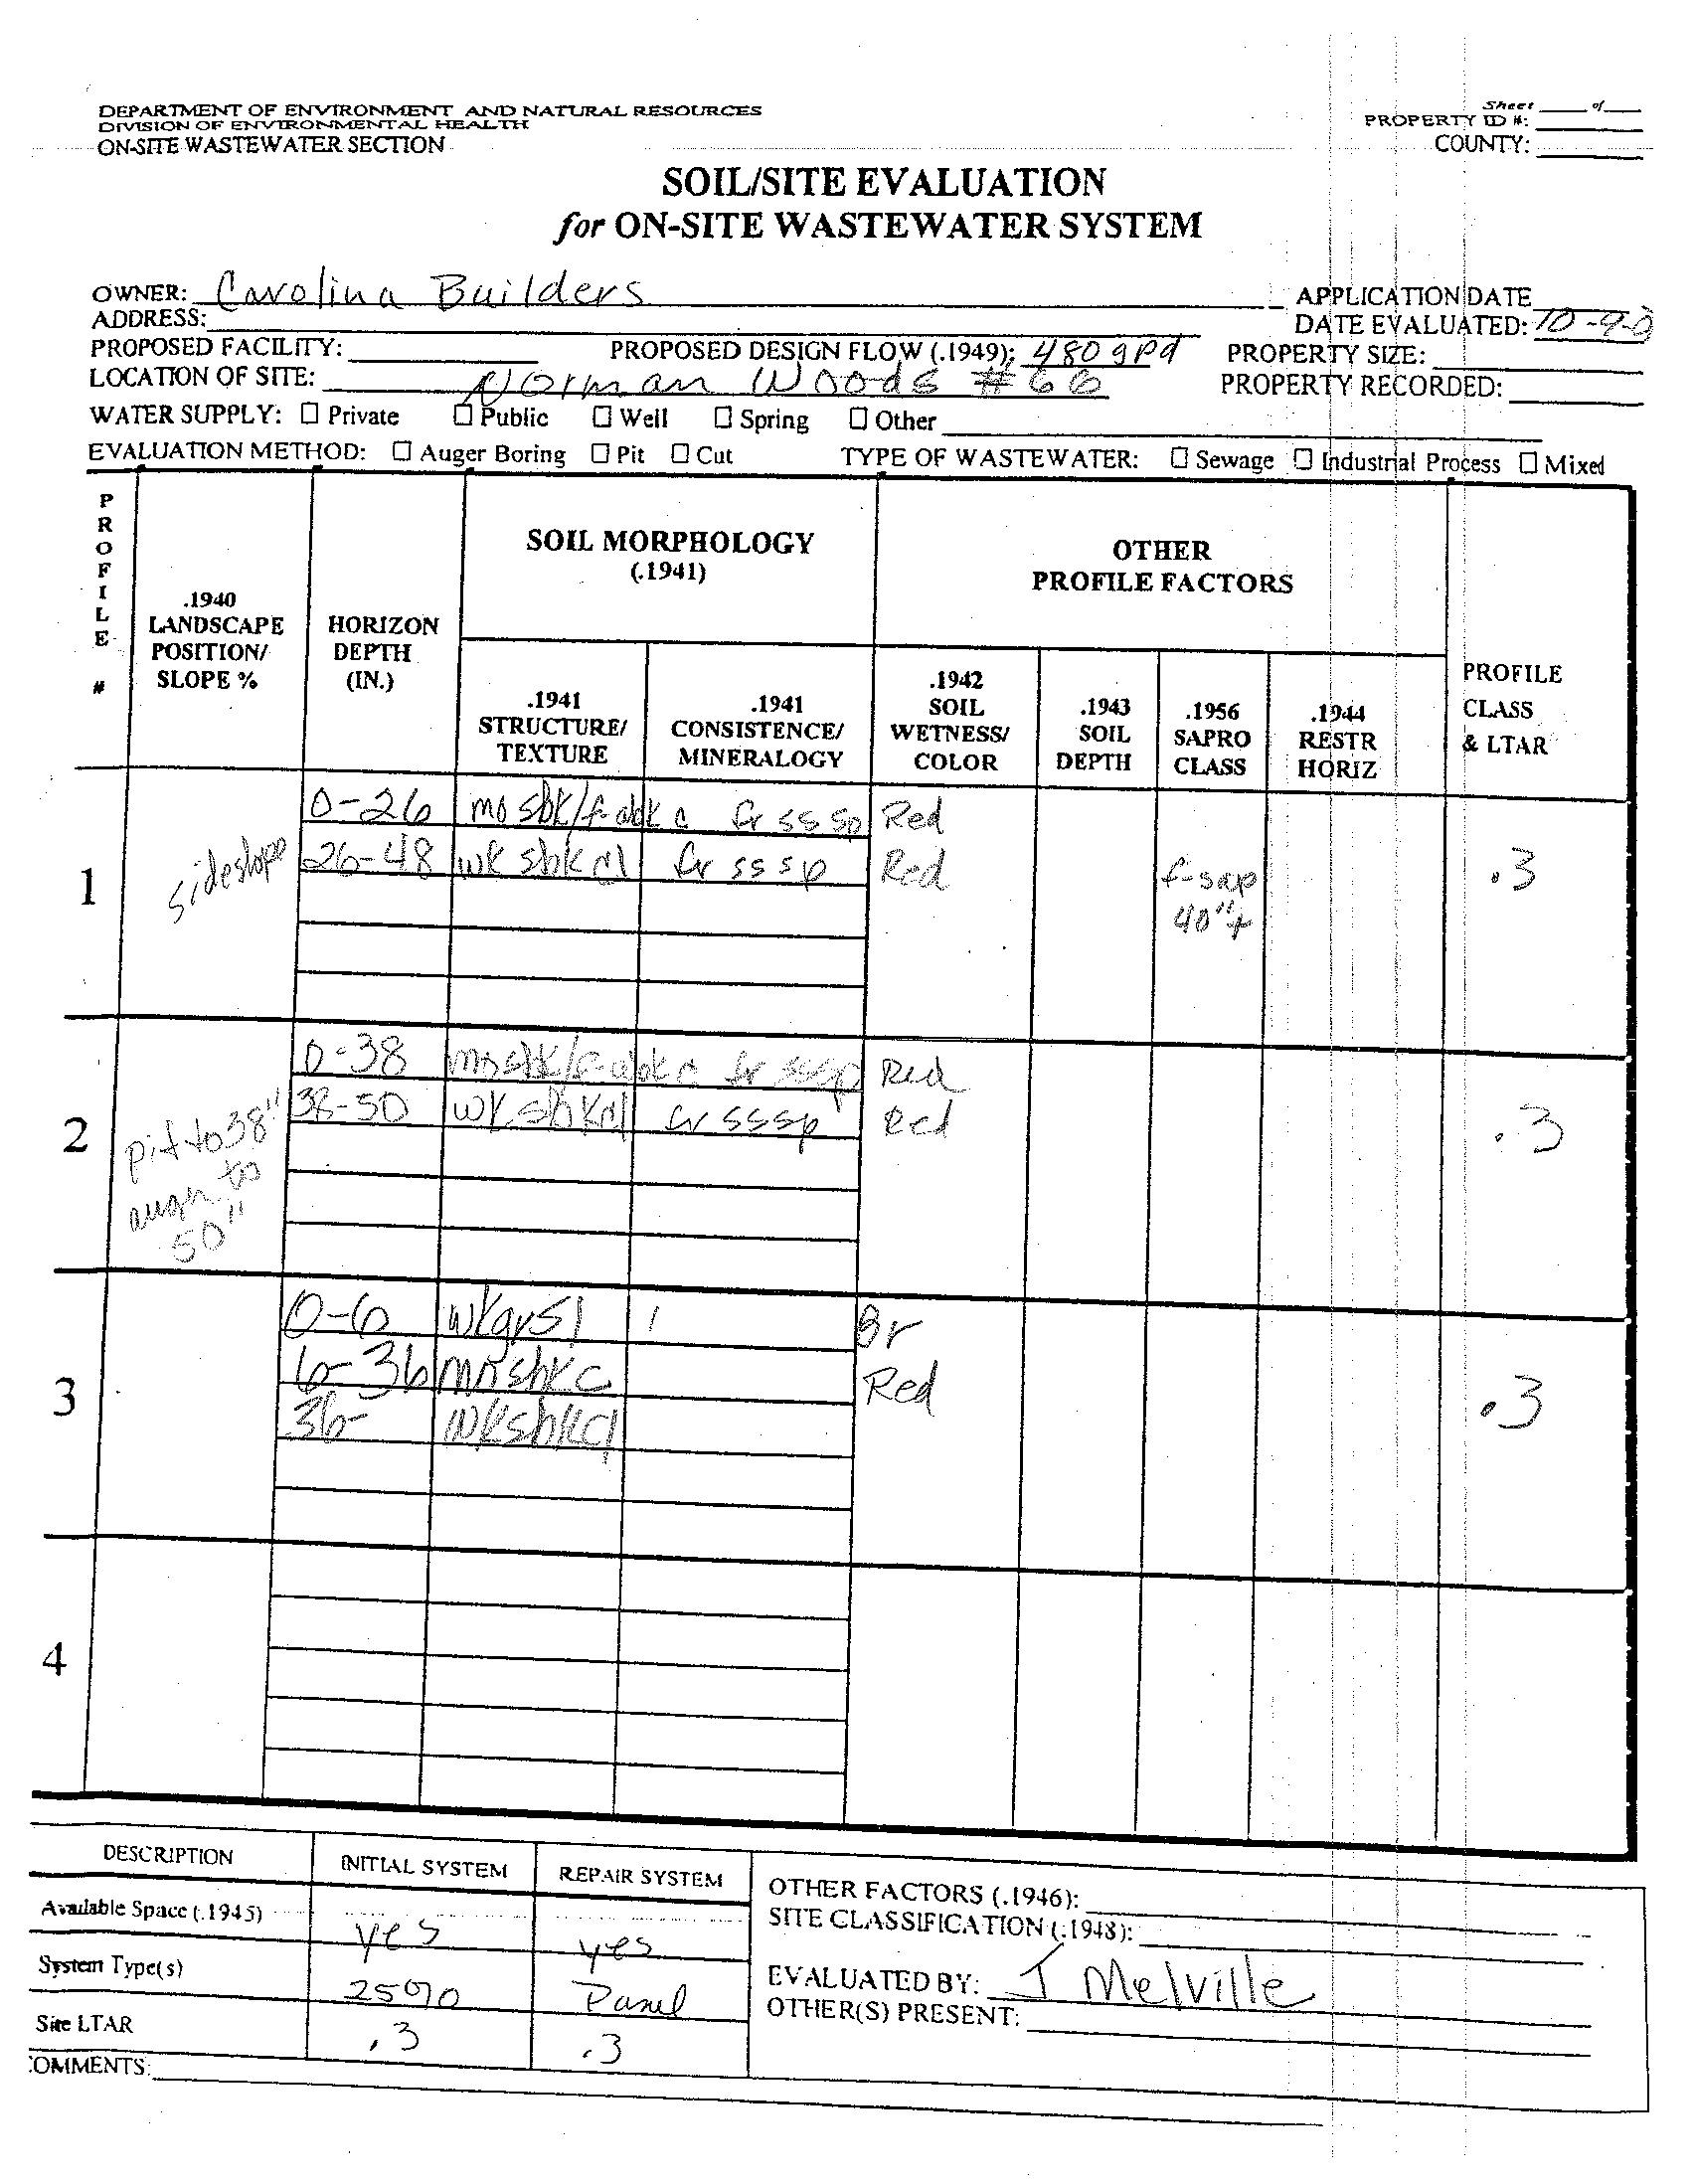 DEPARTMENT OF ENVIRONMENT AND NATURAL RESOURCES
DIVISION OF ENVIRONMENTAL HEALTH
ON-SITE WASTEWATER SECTION
Sheet ____ of ____
PROPERTY ID #:
COUNTY:
SOIL/SITE EVALUATION
for ON-SITE WASTEWATER SYSTEM
OWNER: Carolina Builders
APPLICATION DATE
ADDRESS:
DATE EVALUATED: 10-9-
PROPOSED FACILITY: PROPOSED DESIGN FLOW (.1949): 480 gpd PROPERTY SIZE:
LOCATION OF SITE: Norman Woods #66 PROPERTY RECORDED:
WATER SUPPLY: ☐ Private ☐ Public ☐ Well ☐ Spring ☐ Other
EVALUATION METHOD: ☐ Auger Boring ☐ Pit ☐ Cut TYPE OF WASTEWATER: ☐ Sewage ☐ Industrial Process ☐ Mixed
PROFILE #
.1940 LANDSCAPE POSITION/ SLOPE %
HORIZON DEPTH (IN.)
SOIL MORPHOLOGY (.1941)
OTHER PROFILE FACTORS
.1941 STRUCTURE/ TEXTURE
.1941 CONSISTENCE/ MINERALOGY
.1942 SOIL WETNESS/ COLOR
.1943 SOIL DEPTH
.1956 SAPRO CLASS
.1944 RESTR HORIZ
PROFILE CLASS & LTAR
1
sideslope
0-26 mo sbk/f-abk c fr ss sp Red
26-48 wk sbk cl fr ss sp Red
f-sap
40"+
.3
2
pit to 38"
auger to
50"
0-38 mosbk/f-abk c fr sssp Red
38-50 wk sbk cl fr sssp Red
.3
3
0-6 wkgrsl Br
6-36 mosbk c Red
36- wksbkcl
.3
4
DESCRIPTION INITIAL SYSTEM REPAIR SYSTEM
Available Space (.1945) yes yes
System Type(s) 25% Panel
Site LTAR .3 .3
OTHER FACTORS (.1946):
SITE CLASSIFICATION (.1948):
EVALUATED BY: J Melville
OTHER(S) PRESENT:
COMMENTS: